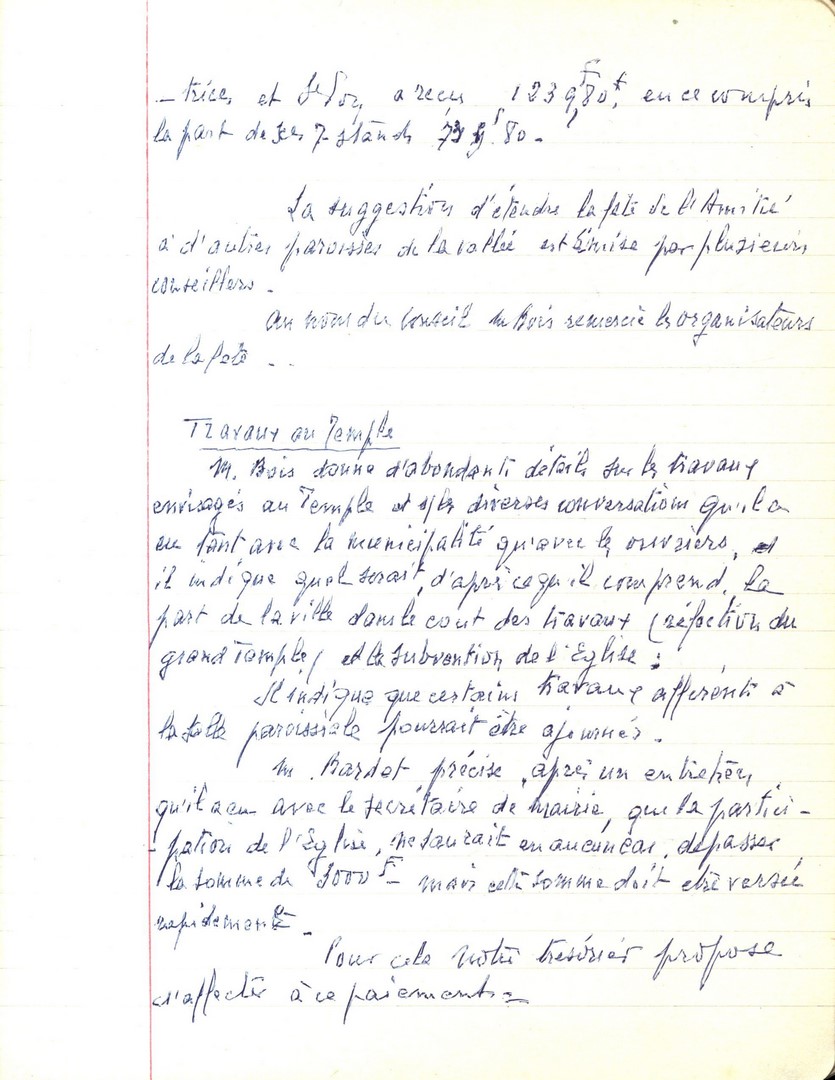 -trice, et a recu 1239,80 F, en ce compris
la part de ses 7 stands 80 -
La suggestion d'étendre la fête de l'Amitié
à d'autres paroisses de la vallée est émise par plusieurs
conseillers -
Au nom du Conseil M Bois remercie les organisateurs
de la fête - -
Travaux au Temple
M. Bois donne d'abondants détails sur les travaux
envisagés au Temple et s/les diverses conversations qu'il a
eu tant avec la municipalité qu'avec les ouvriers, et
il indique quel serait, d'après ce qu'il comprend, la
part de la ville dans le cout des travaux (réfection du
grand Temple) et la subvention de l'Eglise :
Il indique que certains travaux afférents à
la salle paroissiale pourrait être ajournés.
M. Bardet précise, après un entretien
qu'il a eu avec le secrétaire de mairie, que la partici-
-pation de l'Eglise, ne saurait en aucun cas, dépasser
la somme de 3000 F - mais cette somme doit etre versée
rapidement -
Pour cela notre trésorier propose
d'affecter à ce paiement :-